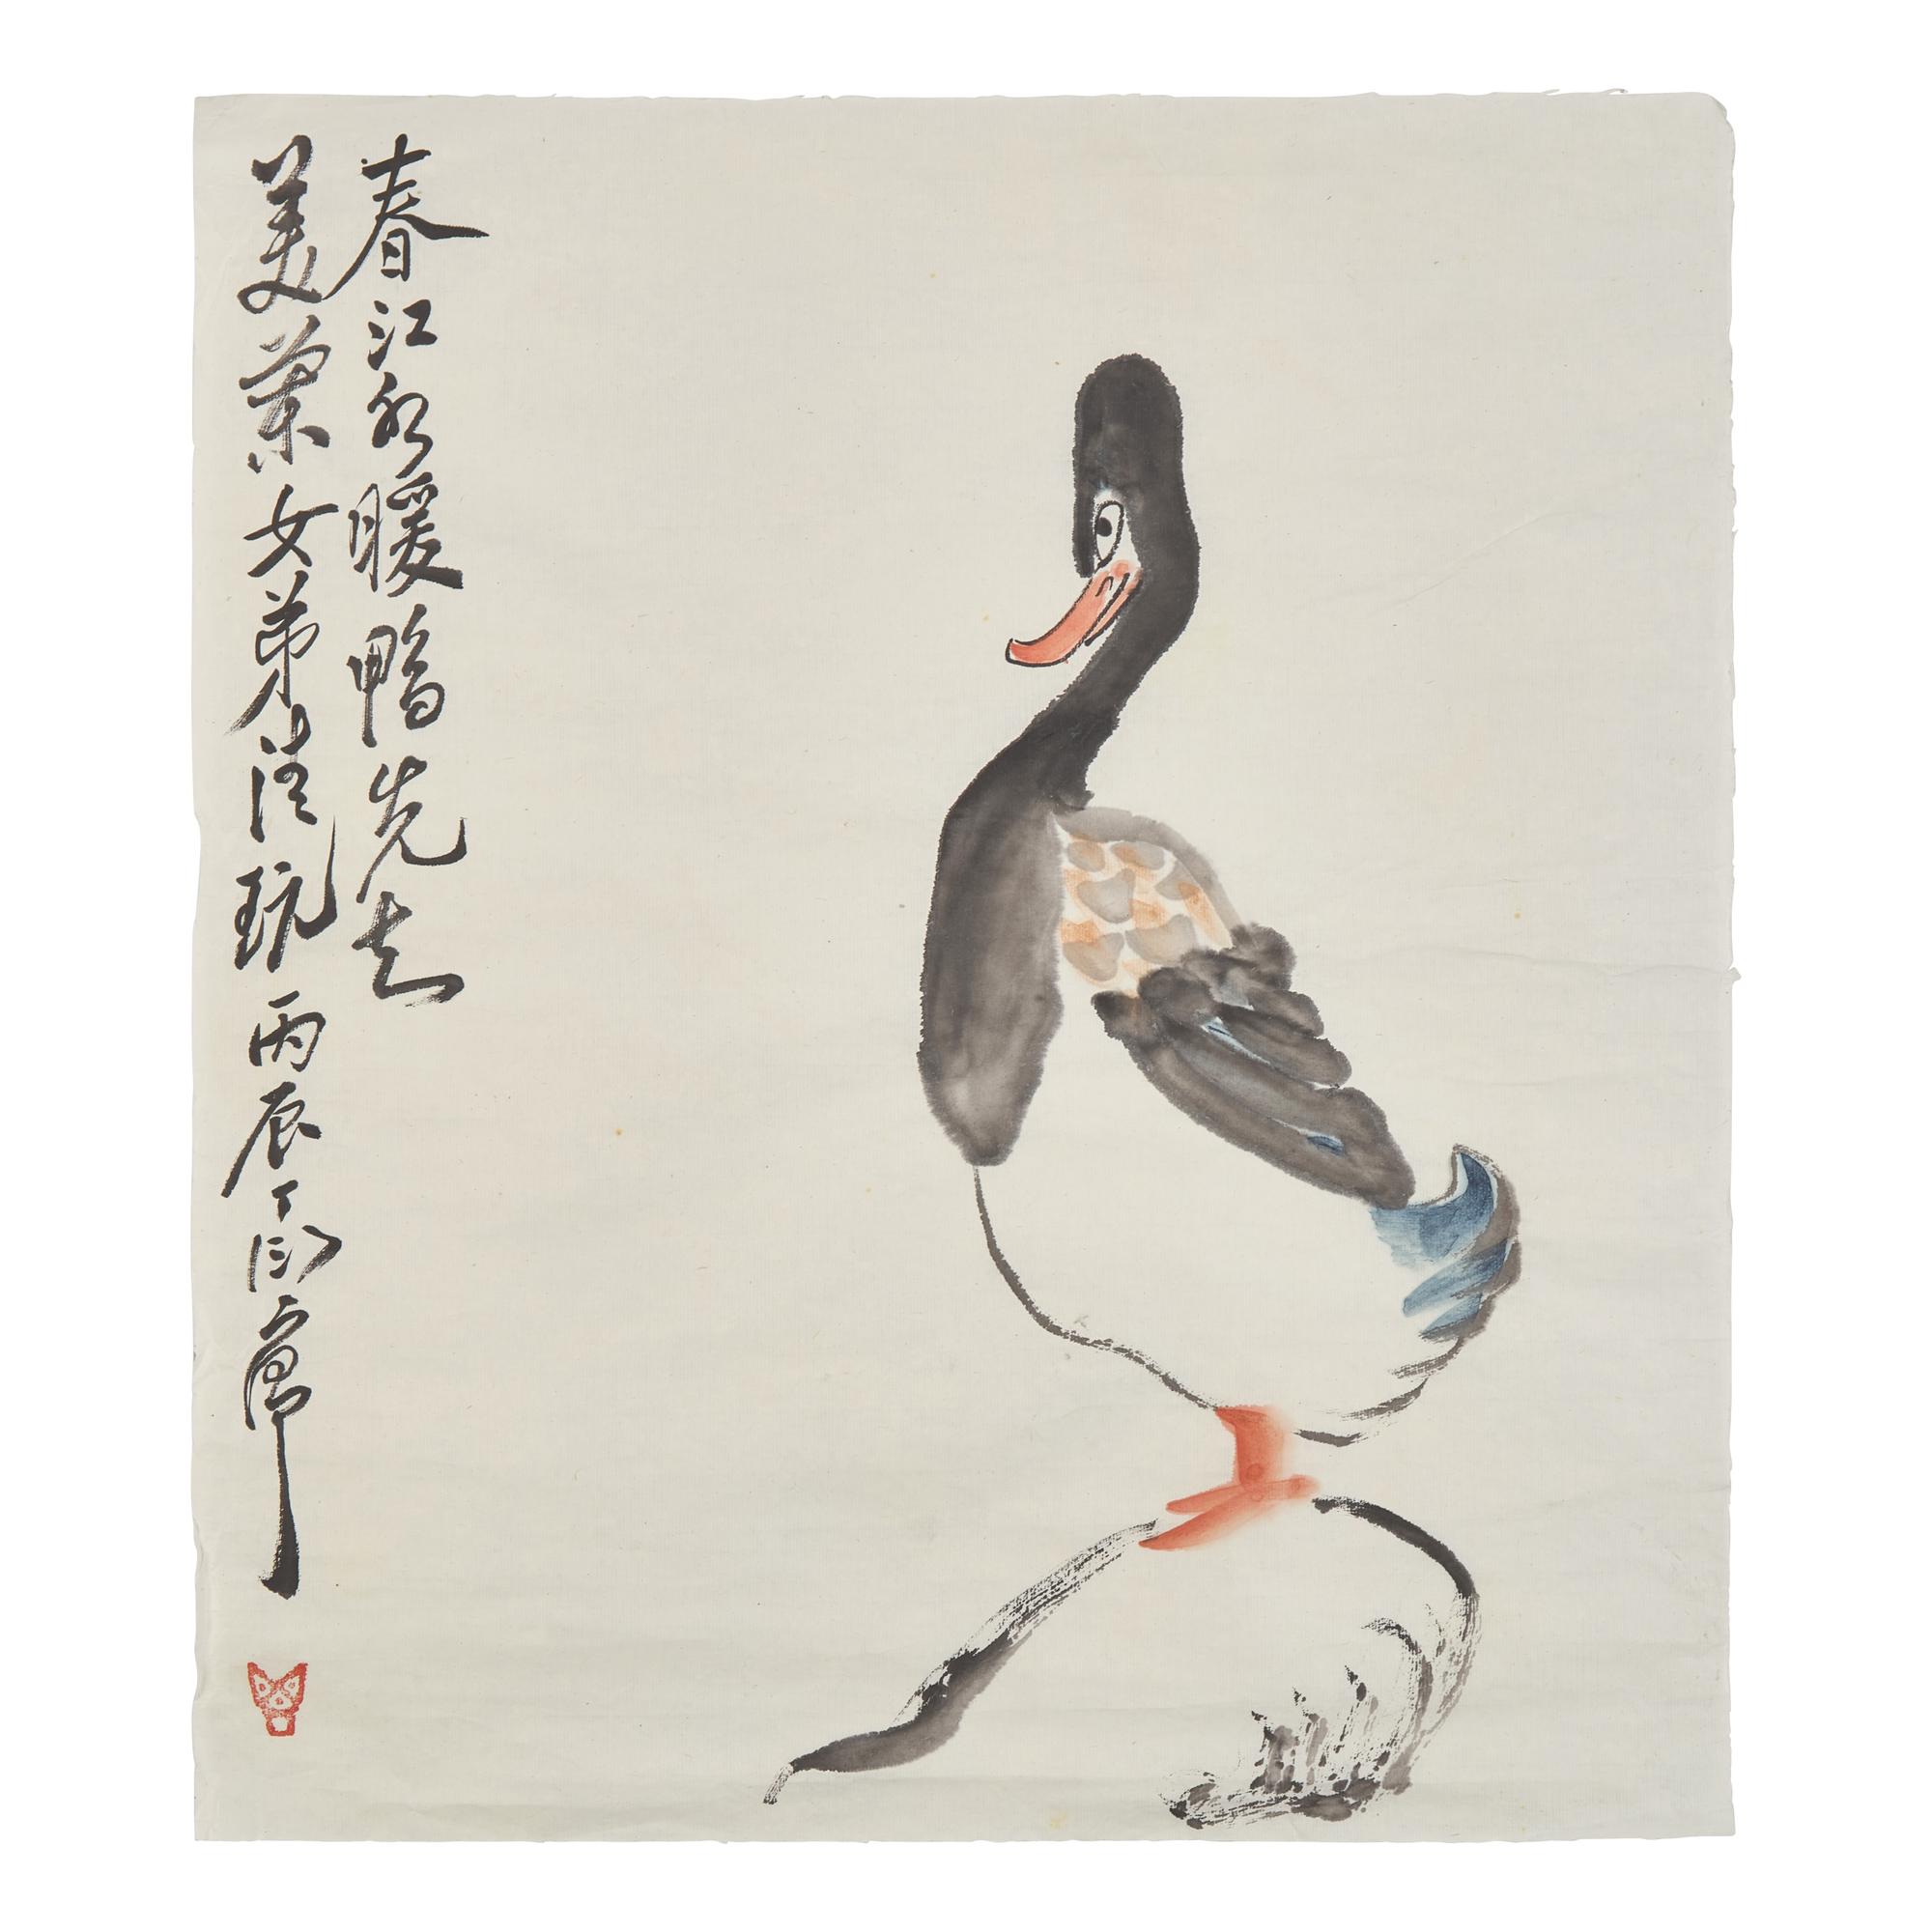 春江水暖鴨先知
美蘭女弟清玩 丙辰丁衍庸